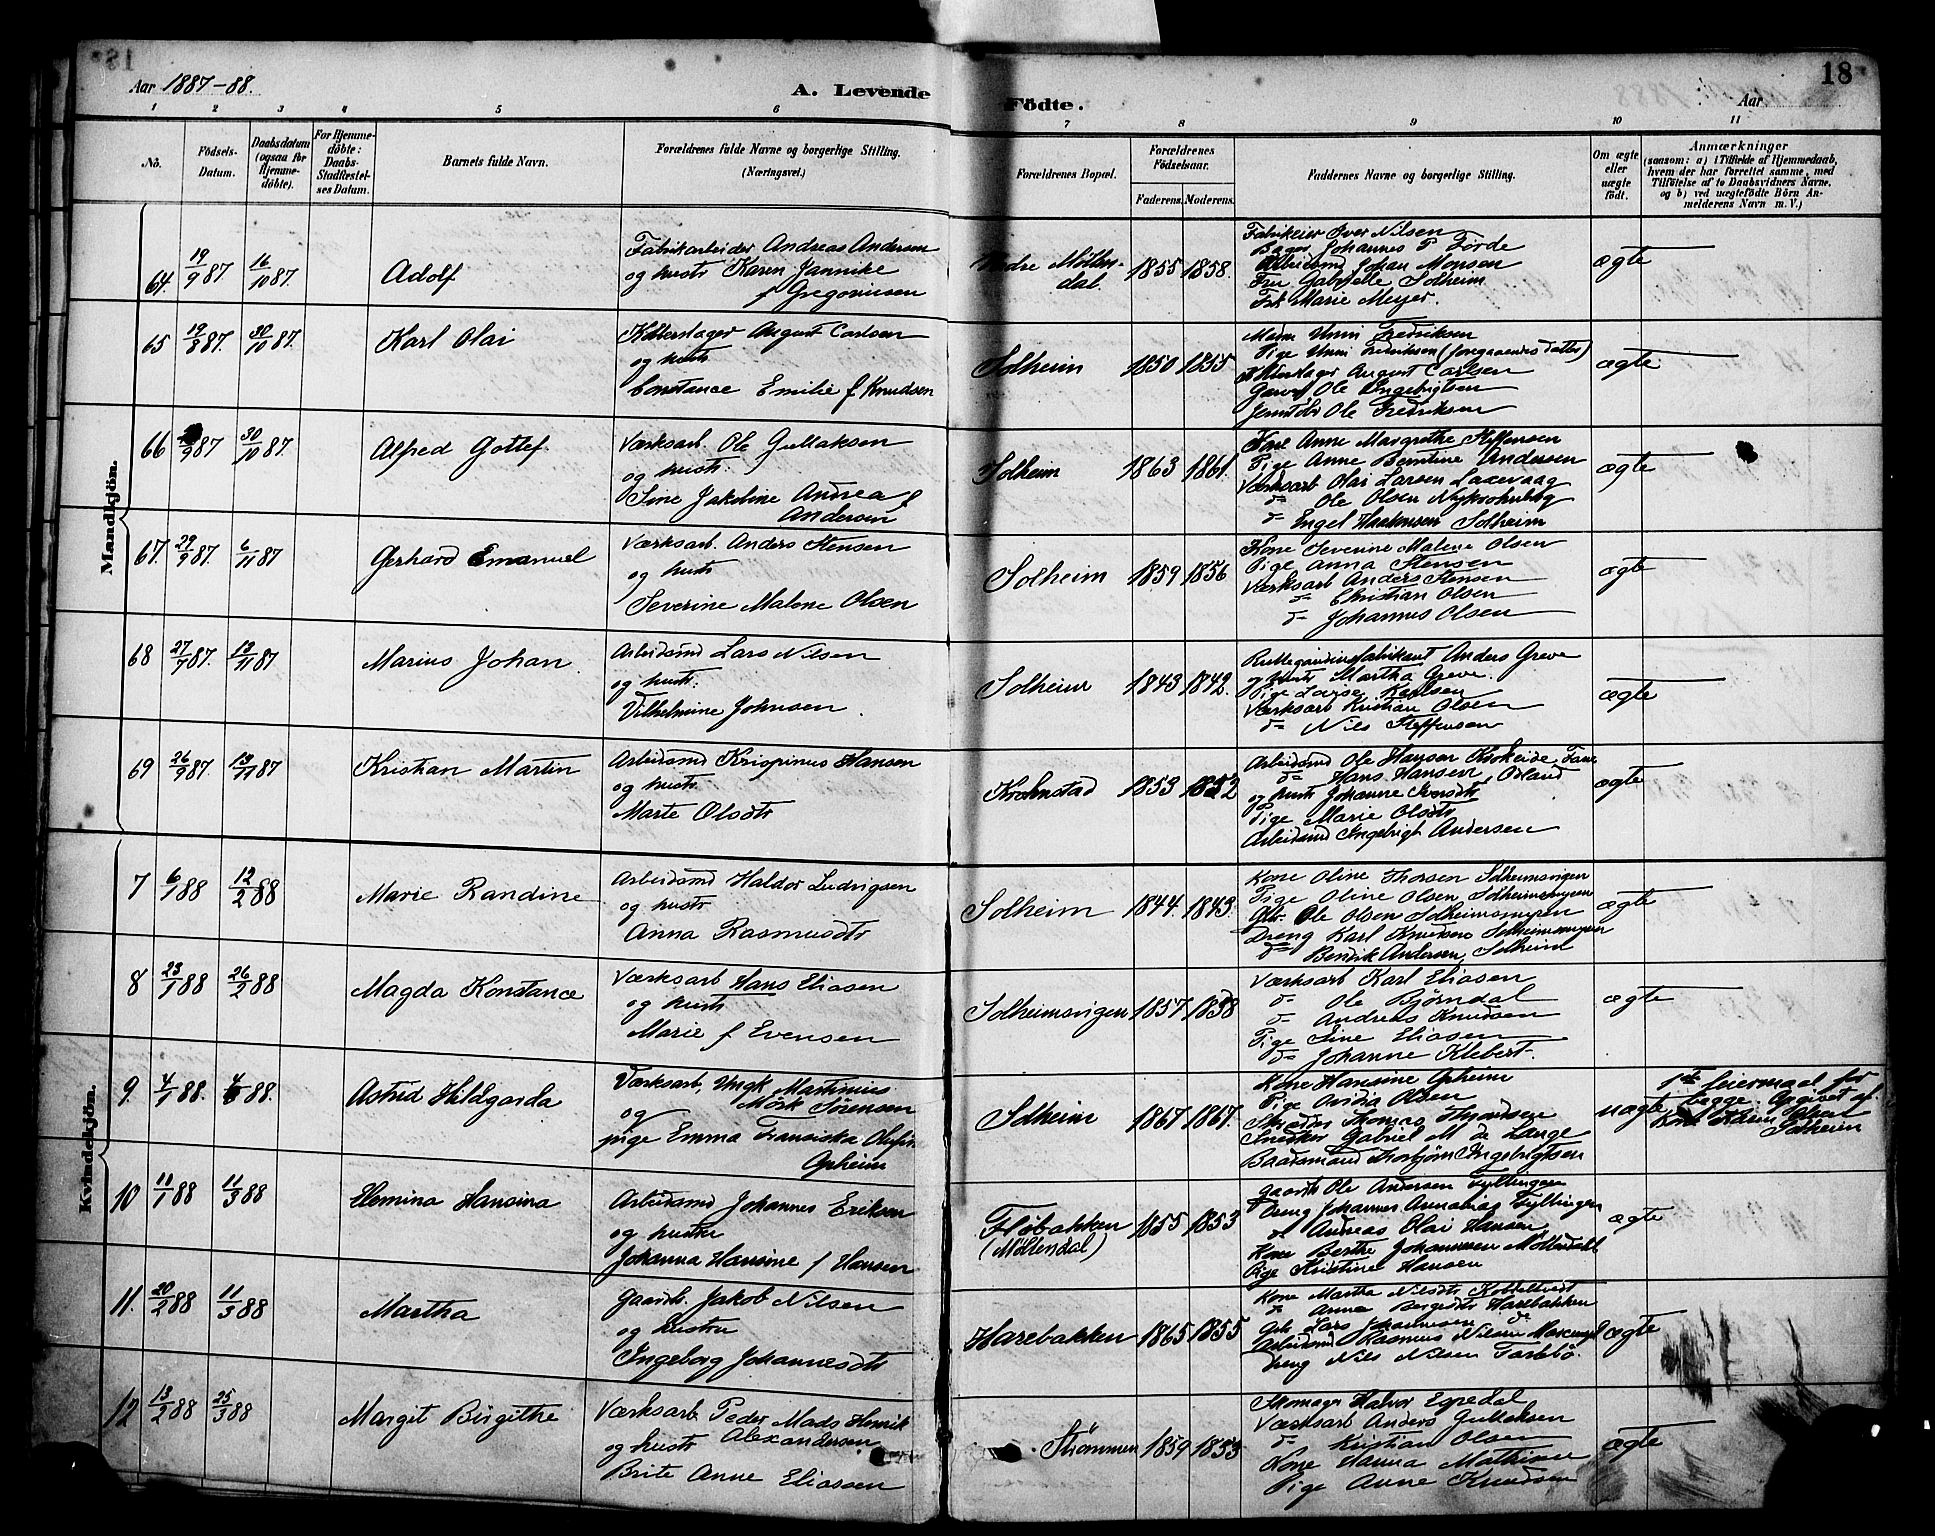 Aar 1887-88.
A. Levende Födte.
Aar
18
1 2 3 4 5 6 7 8 9 10 11
No.
Födsels-Datum.
Daabsdatum (ogsaa for Hjemme-döbte).
For Hjemme-döbte: Daabs-Stadfæstel-ses Datum.
Barnets fulde Navn.
Forældrenes fulde Navne og borgerlige Stilling. (Næringsvei.)
Forældrenes Bopæl.
Forældrenes Födselsaar.
Faderens. Moderens.
Faddernes Navne og borgerlige Stilling.
Om ægte eller uægte födt.
Anmærkninger
(saasom: a) i Tilfælde af Hjemmedaab,
hvem der har forrettet samme, med
Tilföielse af to Daabsvidners Navne,
og b) ved uægtefödte Börn An-
melderens Navn m. V.)
Mandkjön.
64. 19/9 87 16/10 87. Adolf
Fabrikarbeider Andreas Andersen
og hustr Karen Jannike
f Gregoriusen
Møllen-
dal. 1855 1858.
Iver Nilsen
Bager Johannes P Førde
Arbeidsmd Johan Monsen
Fru Gabrielle Solheim
Frk Marie Meyer.
ægte
65 19/8 87. 30/10 87. Karl Olai
August Carlsen
og hustr
Constance Emilie f Knudsen
Solheim 1850 1855
Madm Unni Fredriksen
Pige Unni Fredriksen (foregaaendes datter)
August Carlsen
Garver Ole Engebrigtsen
Ole Fredriksen
ægte
66 /9 87 30/10 87. Alfred Gotlef
Værksarb. Ole Gullaksen
og hustr.
Sine Jakobine Andrea f
Andersen
Solheim 1863 1861
Anne Margrethe Steffensen
Pige Anne Berntine Andersen
Værksarb Olai Larsen Laxevaag
do Ole Olsen
do Engel Haakonsen Solheim
ægte
67. 29/9 87. 6/11 87 Gerhard Emanuel
Værksarb. Anders Stensen
og hustr
Severine Malene Olsen
Solheim 1859 1856
Kone Severine Malene Olsen
Pige Anna Stensen
Værksarb Anders Stensen
do Christian Olsen
do Johannes Olsen
ægte
68 27/7 87. 13/11 87 Marius Johan
Arbeidsmd Lars Nilsen
og hustr.
Vilhelmine Johnsen
Solheim 1843 1842.
Anders Greve
og hustr Martha Greve.
Pige Lovise Karlsen
Værksarb Kristian Olsen
do Nils Steffensen
ægte
69 26/9 87. 13/11 87 Kristian Martin
Arbeidsmd Krispinus Hansen
og hustr
Marte Olsdtr
Kronstad 1853 1852
Arbeidsmd Ole Hansen Krokeide, Fane
do Hans Hansen, Ødland
og hustr Johanne Iversdtr
Pige Marie Olsdtr
Arbeidsmd Ingebrigt Andersen
ægte
Kvindekjön.
7 6/1 88 12/2 88 Marie Randine
Arbeidsmd Haldor Ludvigsen
og hustr
Anna Rasmusdtr
Solheim 1844. 1843.
Kone Oline Thorsen Solheimsvigen
Pige Oline Olsen Solheimsmyren
Gbr. Ole Olsen Solheimsmyren
Dreng Karl Knudsen Solheimsmyren
do Bendik Andersen, Solheim
ægte
8 23/1 88 26/2 88 Magda Konstance
Værksarb Hans Eliasen
og hustr
Marie f Evensen
Solheimsvigen 1857 1858
Værksarb Karl Eliasen
do Ole Bjørndal
do Andreas Knudsen
Pige Sine Eliasen
do Johanne Klebert.
ægte
9. 4/1 88. 88. Astrid Hildgarda
Værksarb, Ungk Martinius
Mørk Sørensen
og
pige Emma Fransiska
Opheim
Solheim 1867 1867.
Kone Hansine Opheim
Pige Ovidia Olsen
Thomas
Snedker Gabriel M de Lange
Baadsmand Thorbjørn Ingebrigtsen
uægte
1ste leiermaal for
begge. Opgivet af
Kone Olsen
Solheim
10 11/1 88 11/3 88 Hemina Hansina
Arbeidsmd Johannes Eriksen
og hustru
Johanna Hansine f Hansen
Fløbakken
(Møllendal) 1855 1853
Gaardb Ole Andersen Fyllingen
Dreng Johannes Annanias Fyllingen
do Andreas Olai Hansen
Kone Berthe Johannesen Møllendal
Pige Kristine Hansen
ægte
11. 20/2 88 11/3 88 Martha
Gaardb. Jakob Nilsen
og hustru
Ingeborg Johannesdtr
Harebakken 1865 1855
Kone Martha Nilsdtr
do Anna Harebakken
Gbr Lars Johannesen do
Arbeidsmd Rasmus Nilsen
Dreng Nils Nilsen
ægte
12 13/2 88 25/3 88 Margit Birgithe
Værksarb. Peder Mads Henrik
Alexandersen
og hustr
Brite Anne Eliassen
Strømmen 1859 1853
Skomager Halvor Egedal
Værksarb Anders Gullaksen
do Kristian Olsen
Kone Hanna Mathisen
Pige Anne Knudsen
ægte